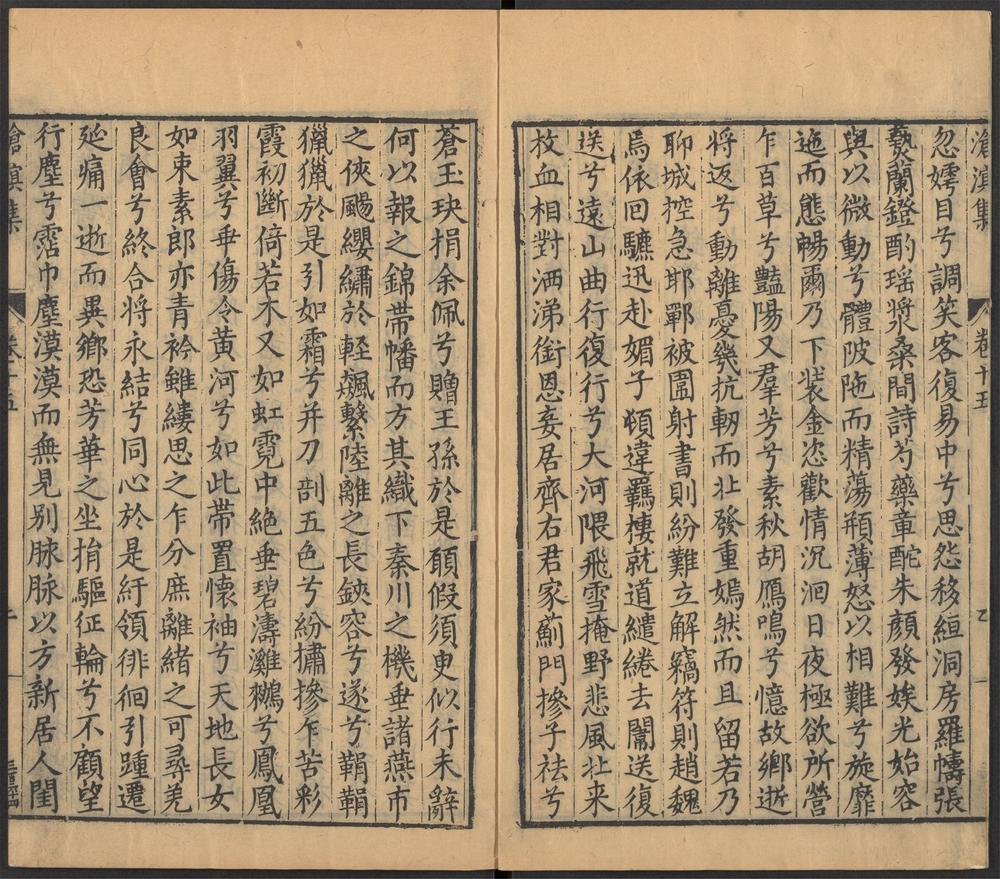 滄溟集 卷十五 乙
忽嫮目兮調笑客復易中兮思怨移絙洞房羅幬張
爇蘭鐙酌瑶漿桑間詩芍藥章酡朱顔發娭光始容
與以微動兮體陂陁而精蕩頩薄怒以相難兮旋靡
迤而態暢爾乃下裝金恣歡情沉洄日夜極欲所營
乍百草兮豔陽又羣芳兮素秋胡鴈鳴兮憶故鄉逝
將返兮動離憂幾抗軔而北發重嫣然而且留若乃
聊城控急邯鄲被圍射書則紛難立解竊符則趙魏
焉依回驂迅赴媚子頓違羈棲就道繾綣去闈送復
送兮遠山曲行復行兮大河隈飛雪掩野悲風北來
抆血相對洒涕銜恩妾居齊右君家薊門摻子祛兮
蒼玉玦捐余佩兮贈王孫於是願假須臾似行未辭
何以報之錦帶幡而方其織下秦川之機垂諸燕市
之俠颺纓繡於輕飆繫陸離之長鋏容兮遂兮鞙鞙
獵獵於是引如霜兮并刀剖五色兮紛㩋摻乍苦彩
霞初斷倚若木又如虹霓中絶垂碧濤灕鷞兮鳳凰
羽翼兮垂傷令黃河兮如此帶置懷袖兮天地長女
如束素郎亦青衿雖縷思之乍分庶離緒之可尋羌
良會兮終合將永結兮同心於是紆領徘徊引踵遷
延痛一逝而異鄉恐芳華之坐捐驅征輪兮不顧望
行塵兮霑巾塵漠漠而無見別脉脉以方新居人閨
滄溟集 卷十五 二